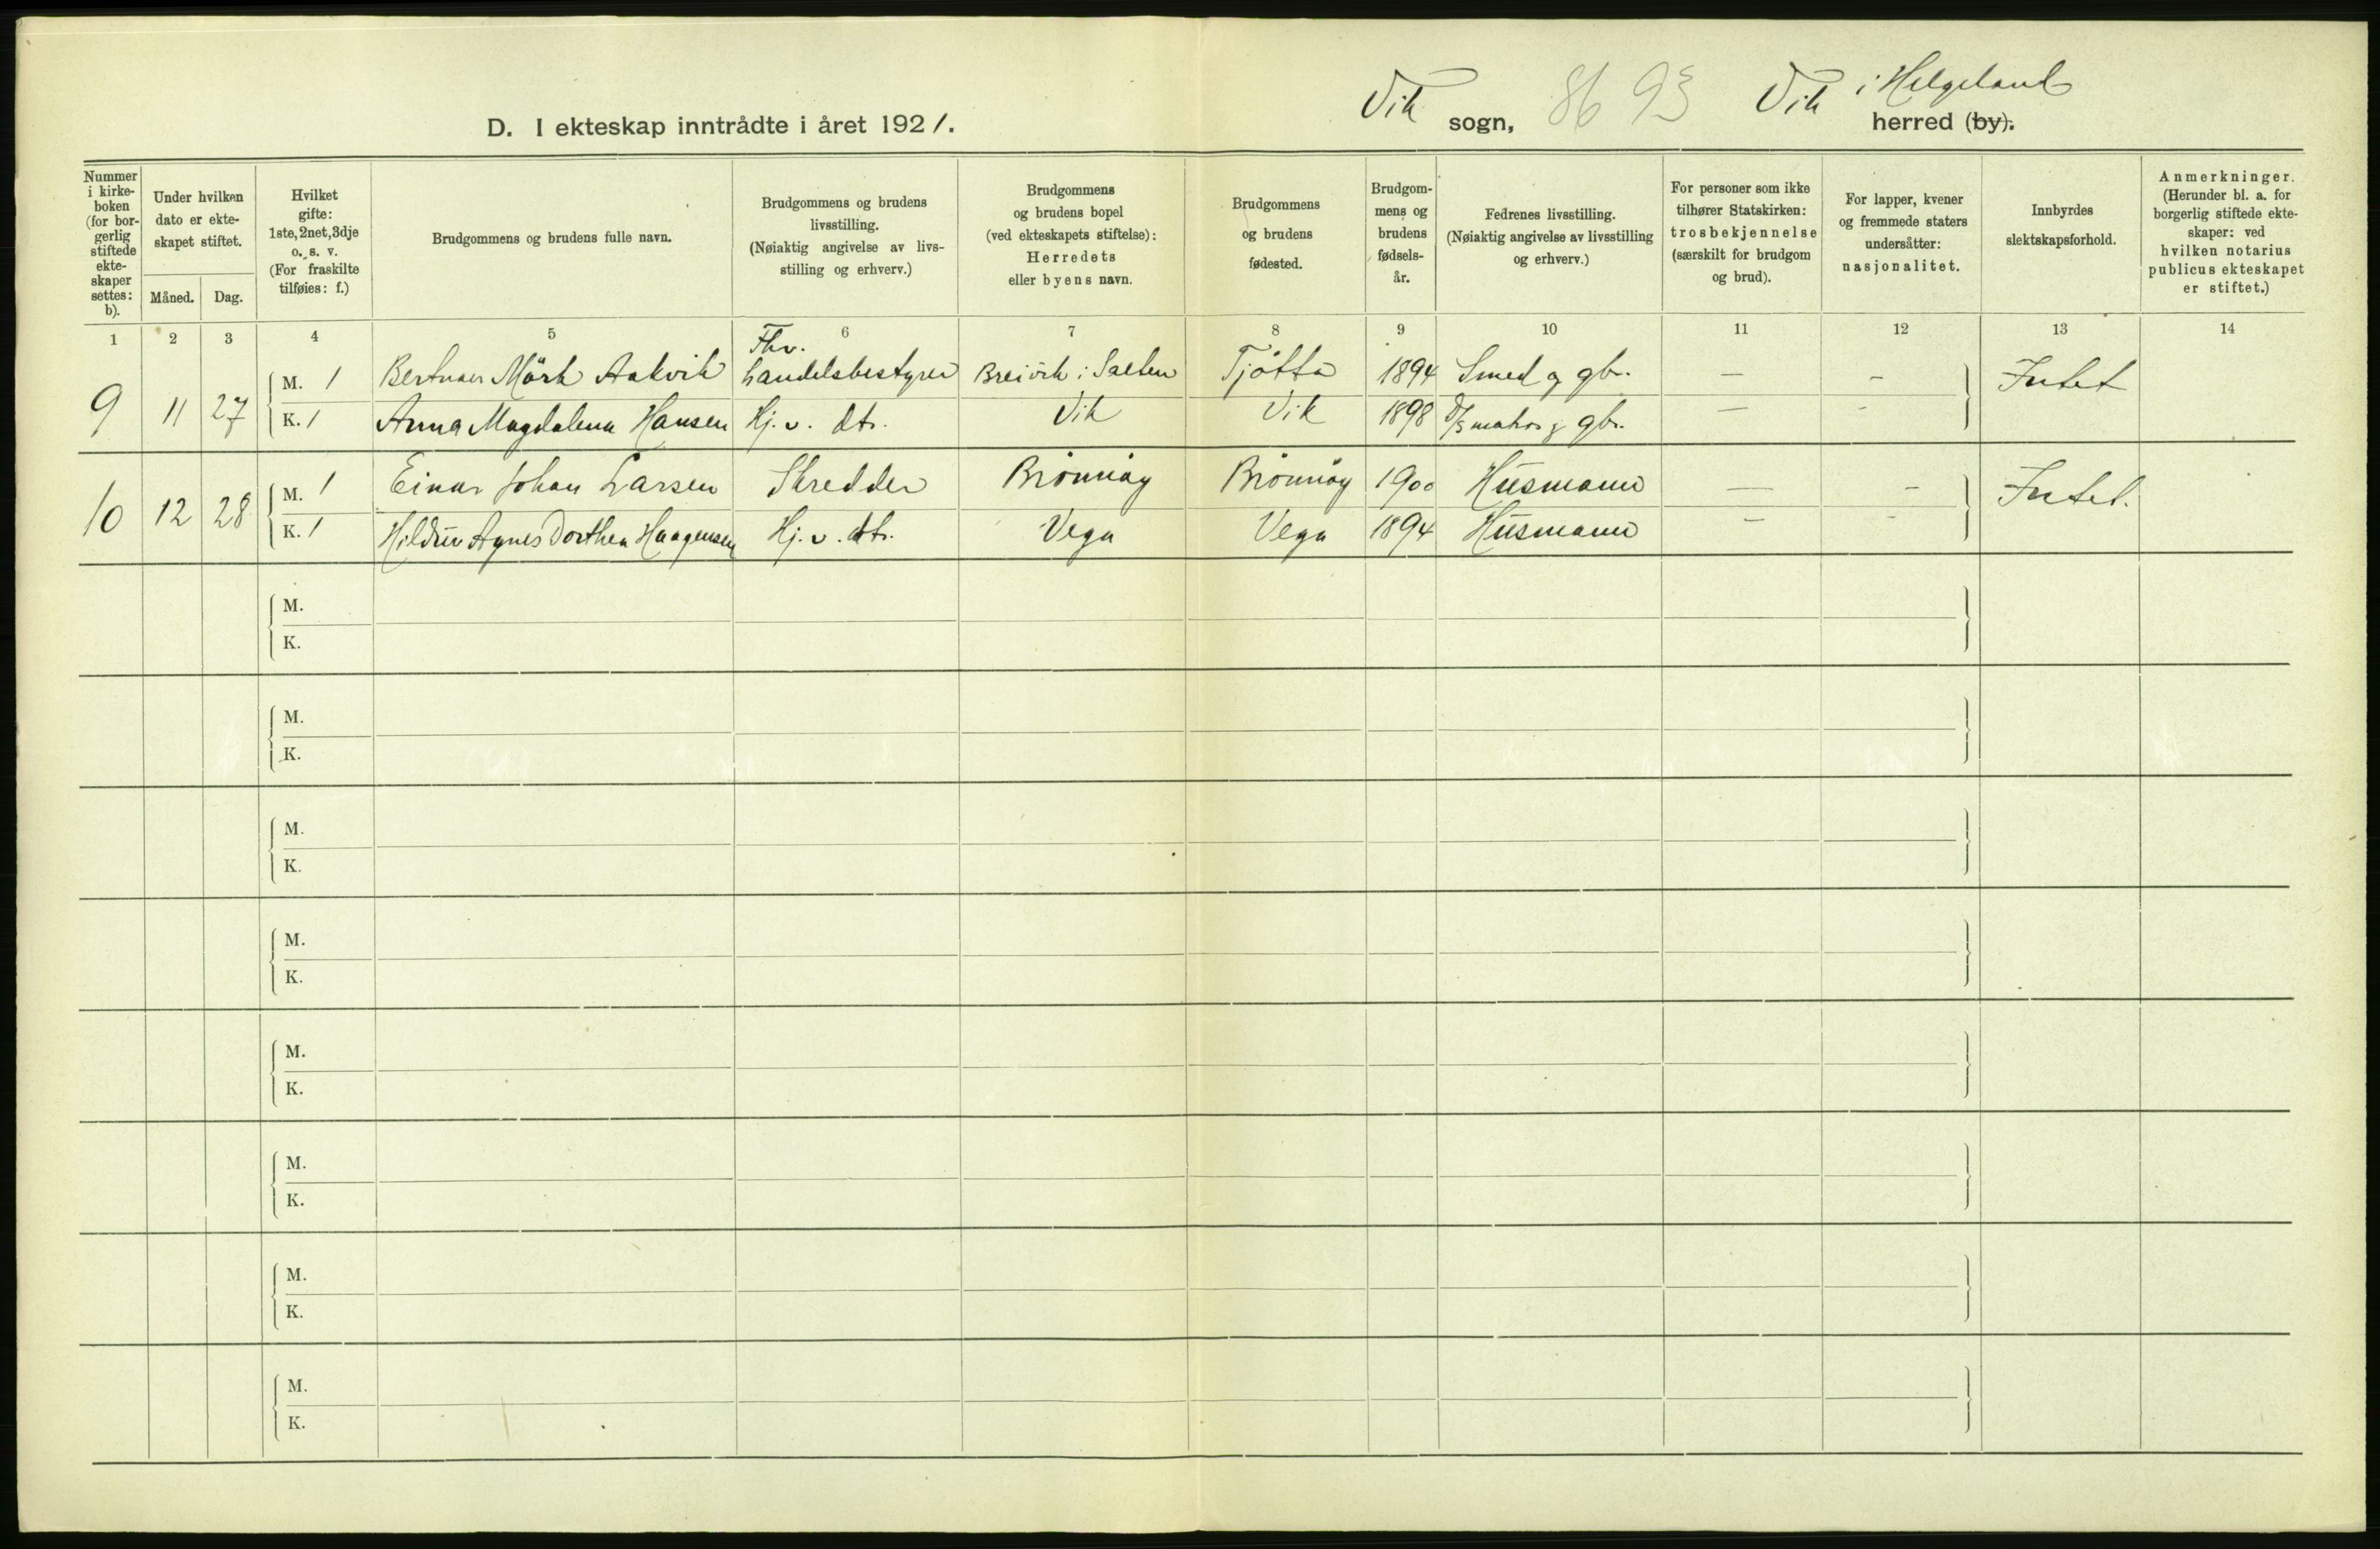 D. I ekteskap inntrådte i året 1921.
Vik sogn, 86 93 Vik i Helgeland herred (by).
Nummer i kirkeboken (for borgerlig stiftede ekteskaper settes: b).
Under hvilken dato er ekteskapet stiftet.
Måned. Dag.
Hvilket gifte: 1ste, 2net, 3dje o. s. v. (For fraskilte tilføies: f.)
Brudgommens og brudens fulle navn.
Brudgommens og brudens livsstilling. (Nøiaktig angivelse av livsstilling og erhverv.)
Brudgommens og brudens bopel (ved ekteskapets stiftelse): Herredets eller byens navn.
Brudgommens og brudens fødested.
Brudgommens og brudens fødselsår.
Fedrenes livsstilling. (Nøiaktig angivelse av livsstilling og erhverv.)
For personer som ikke tilhører Statskirken: trosbekjennelse (særskilt for brudgom og brud).
For lapper, kvener og fremmede staters undersåtter: nasjonalitet.
Innbyrdes slektskapsforhold.
Anmerkninger. (Herunder bl. a. for borgerlig stiftede ekteskaper: ved hvilken notarius publicus ekteskapet er stiftet.)
1 2 3 4 5 6 7 8 9 10 11 12 13 14
9 11 27
M. 1 Mörk Aakvik Fhv. handelsbestyrer Breivik i Salten Tjøtta 1894 Smed og gbr. — — Intet
K. 1 Anna Magdalena Hansen Hj. v. dtr. Vik Vik 1898 gbr. — —
10 12 28
M. 1 Einar Johan Larsen Skredder Brönnöy Brönnöy 1900 Husmann — — Intet.
K. 1 Hildur Agnes Dorthea Haagensen Hj. v. dtr. Vega Vega 1894 Husmann — —
M.
K.
M.
K.
M.
K.
M.
K.
M.
K.
M.
K.
M.
K.
M.
K.